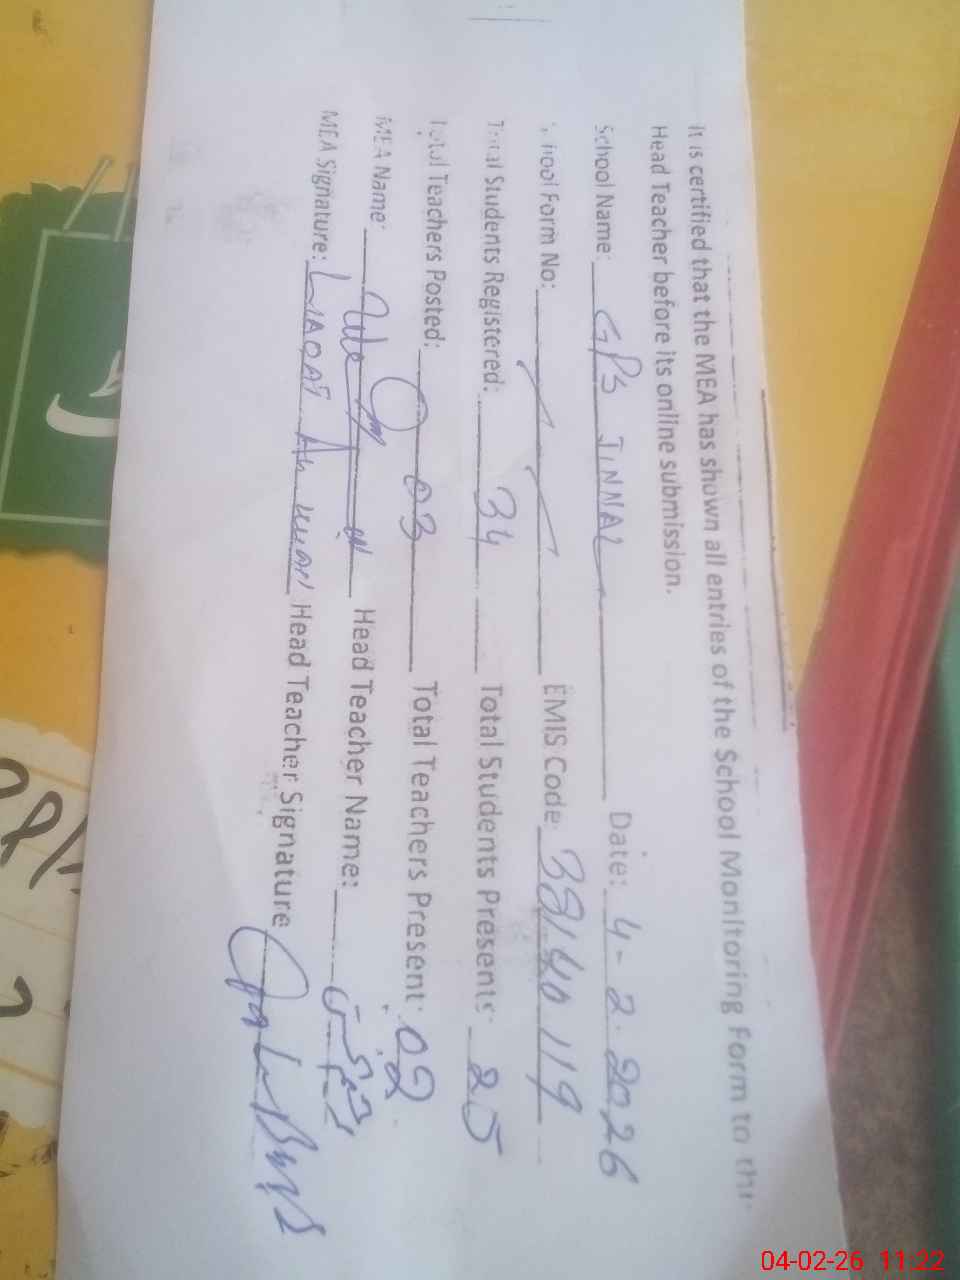 It is certified that the MEA has shown all entries of the School Monitoring Form to the
Head Teacher before its online submission.
School Name: GPS JINNAL Date: 4-2-2026
School Form No: EMIS Code: 38140119
Total Students Registered: 34 Total Students Present: 25
Total Teachers Posted: 03 Total Teachers Present: 02
MEA Name: Head Teacher Name:
MEA Signature: LIAQAT Head Teacher Signature
04-02-26 11:22